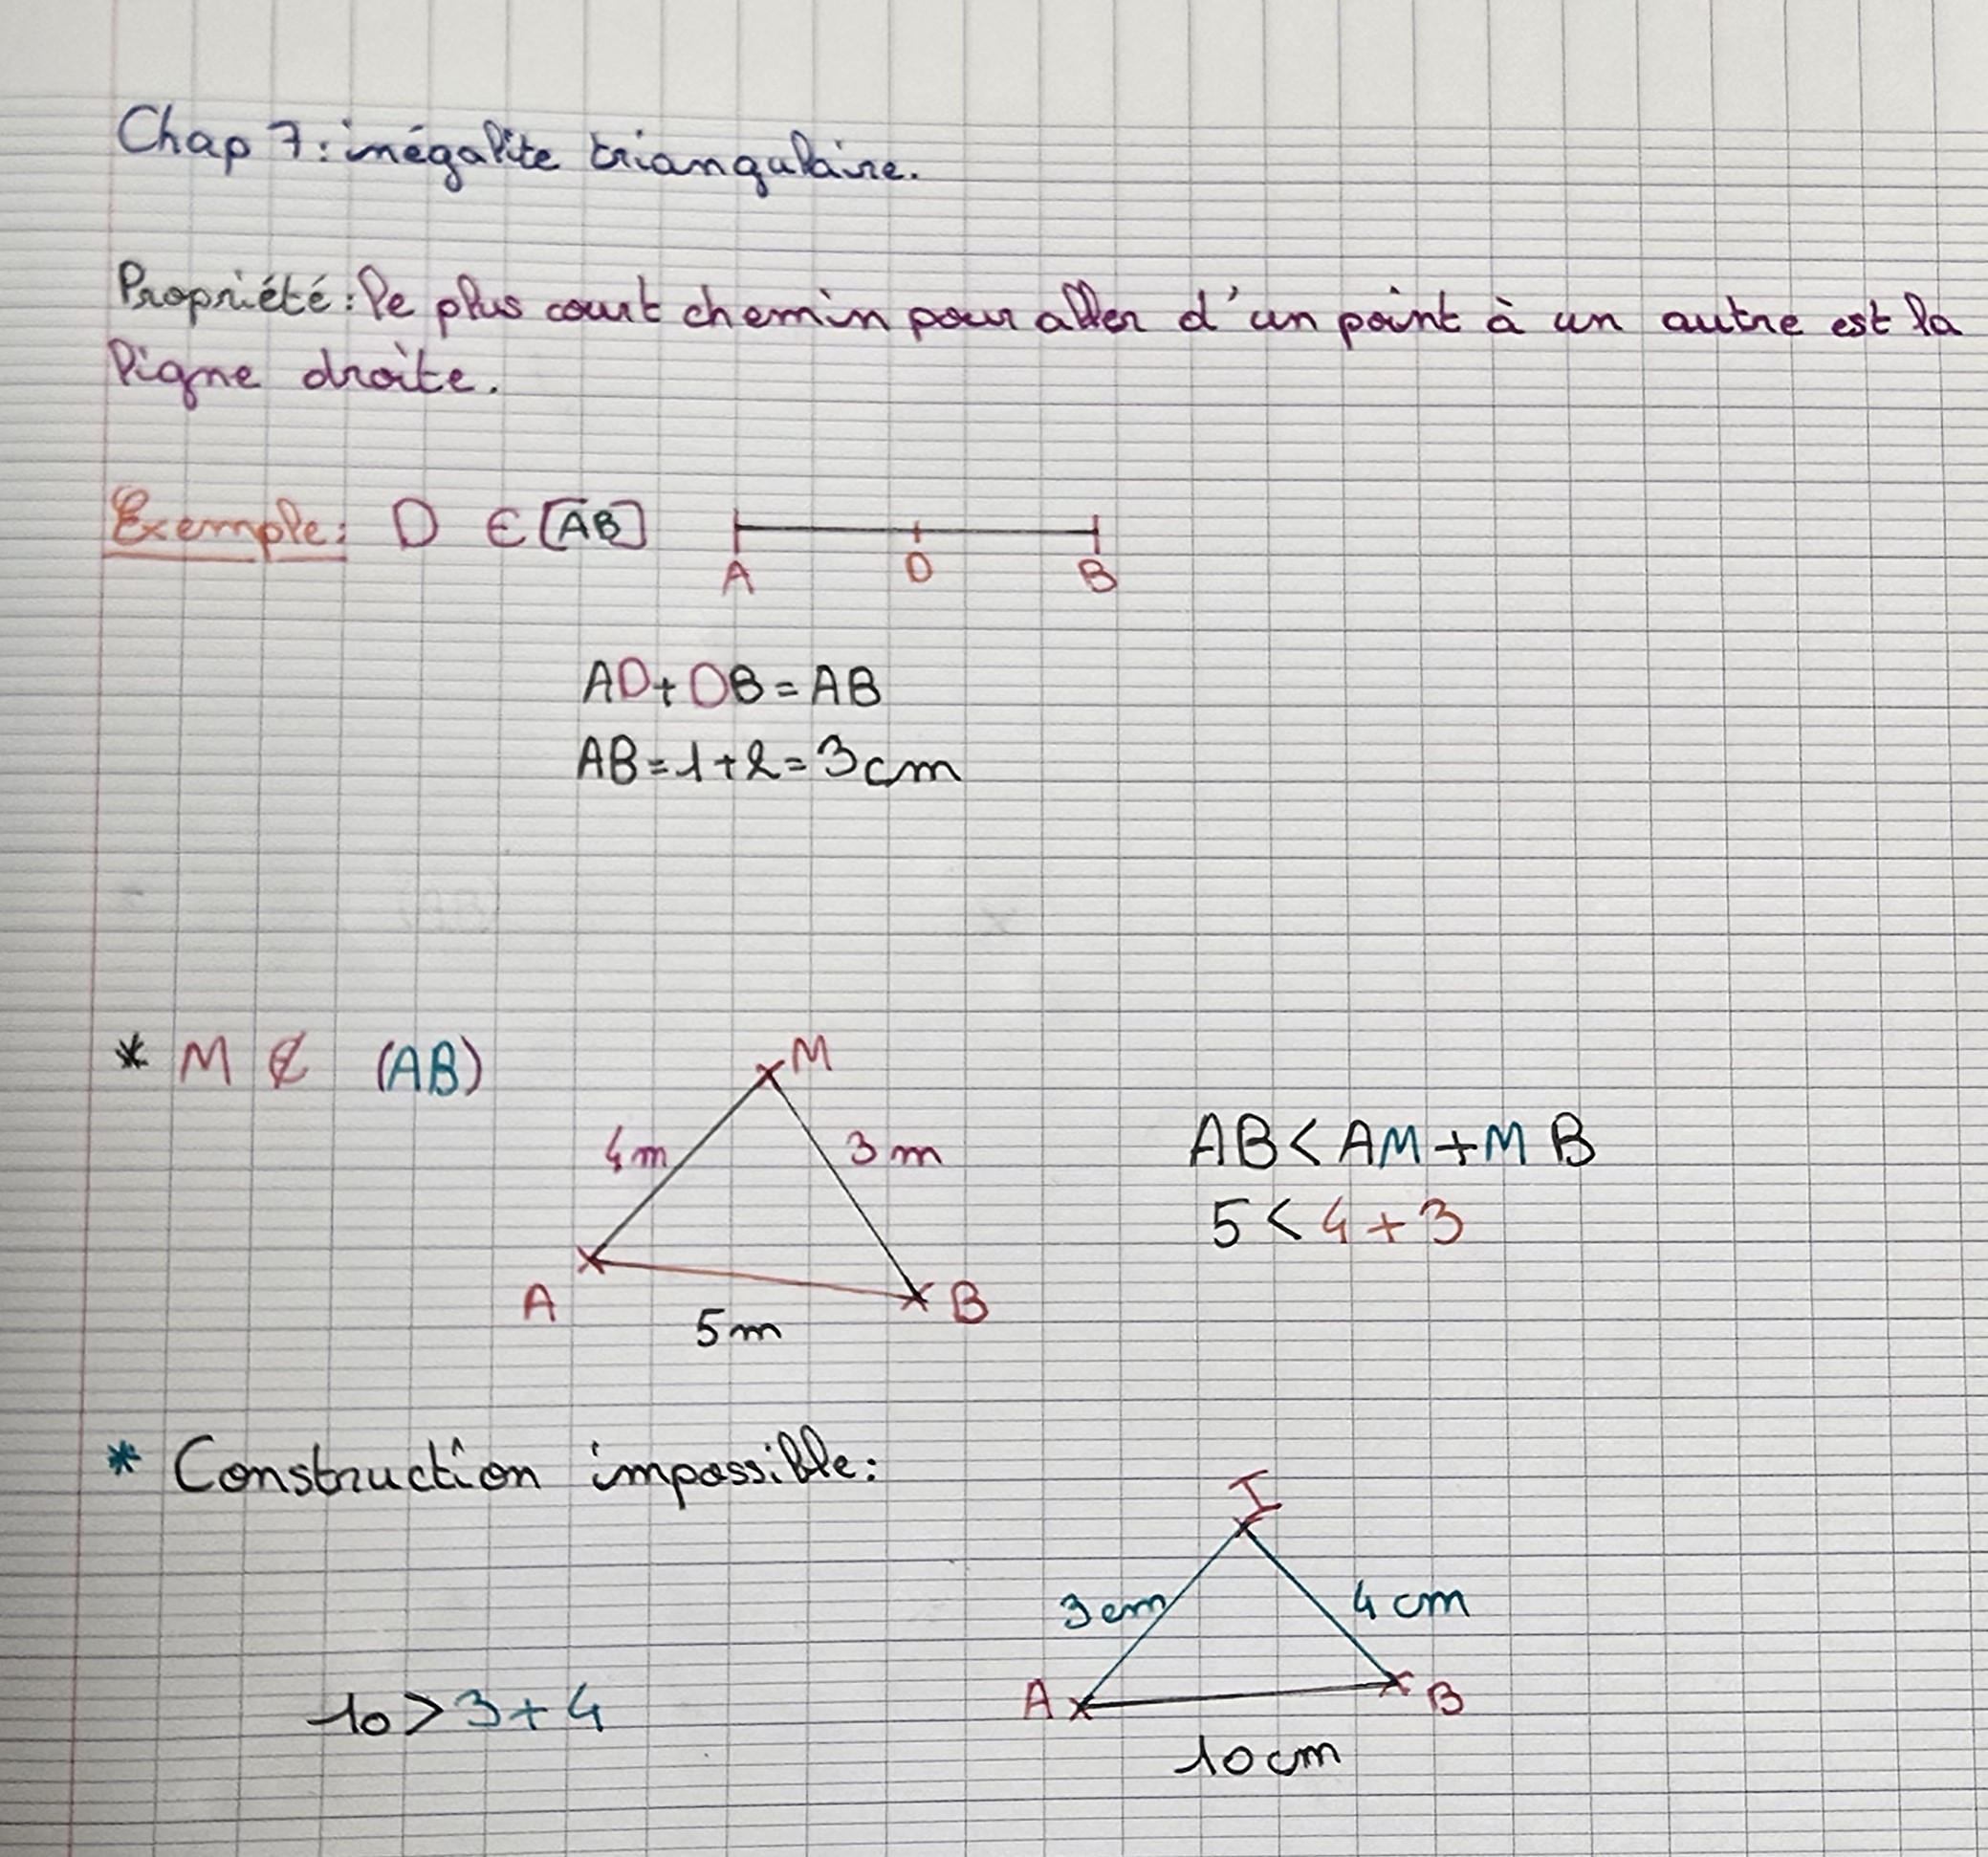 Chap 7: inégalite triangulaire.
Propriété: le plus court chemin pour aller d'un point à un autre est la
ligne droite.
Exemple: D ∈ [AB]
A D B
AD + DB = AB
AB = 1 + 2 = 3cm
* M ∉ (AB)
M
4m 3m
A B
5m
AB < AM + MB
5 < 4 + 3
* Construction impossible:
I
3cm 4cm
A B
10cm
10 > 3 + 4